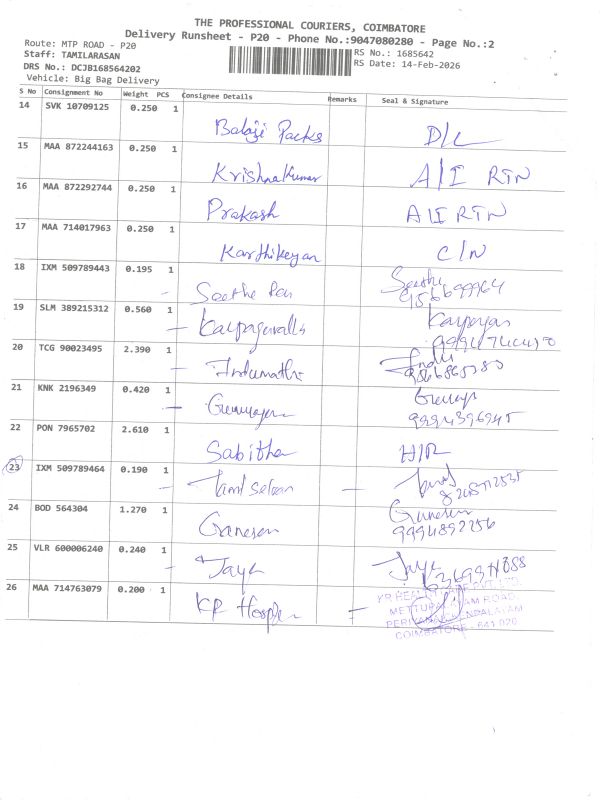 THE PROFESSIONAL COURIERS, COIMBATORE
Delivery Runsheet - P20 - Phone No.:9047080280 - Page No.:2
Route: MTP ROAD - P20
Staff: TAMILARASAN
DRS No.: DCJB168564202
Vehicle: Big Bag Delivery
RS No.: 1685642
RS Date: 14-Feb-2026
S No Consignment No Weight PCS Consignee Details Remarks Seal & Signature
14 SVK 10709125 0.250 1
Balaji Packs D/L
15 MAA 872244163 0.250 1
Krishnakumar A/I RTN
16 MAA 872292744 0.250 1
Prakash A/I RTN
17 MAA 714017963 0.250 1
Karthikeyan C/N
18 IXM 509789443 0.195 1
Seethe
19 SLM 389215312 0.560 1
20 TCG 90023495 2.390 1
Indumathi Indu
21 KNK 2196349 0.420 1
9994396945
22 PON 7965702 2.610 1
Sabitha H/R
23 IXM 509789464 0.190 1
Tamil Selvan
24 BOD 564304 1.270 1
Ganesan Ganesan
9994892256
25 VLR 600006240 0.240 1
Jaya Jaya
26 MAA 714763079 0.200 1
KP
COIMBATORE - 641 020